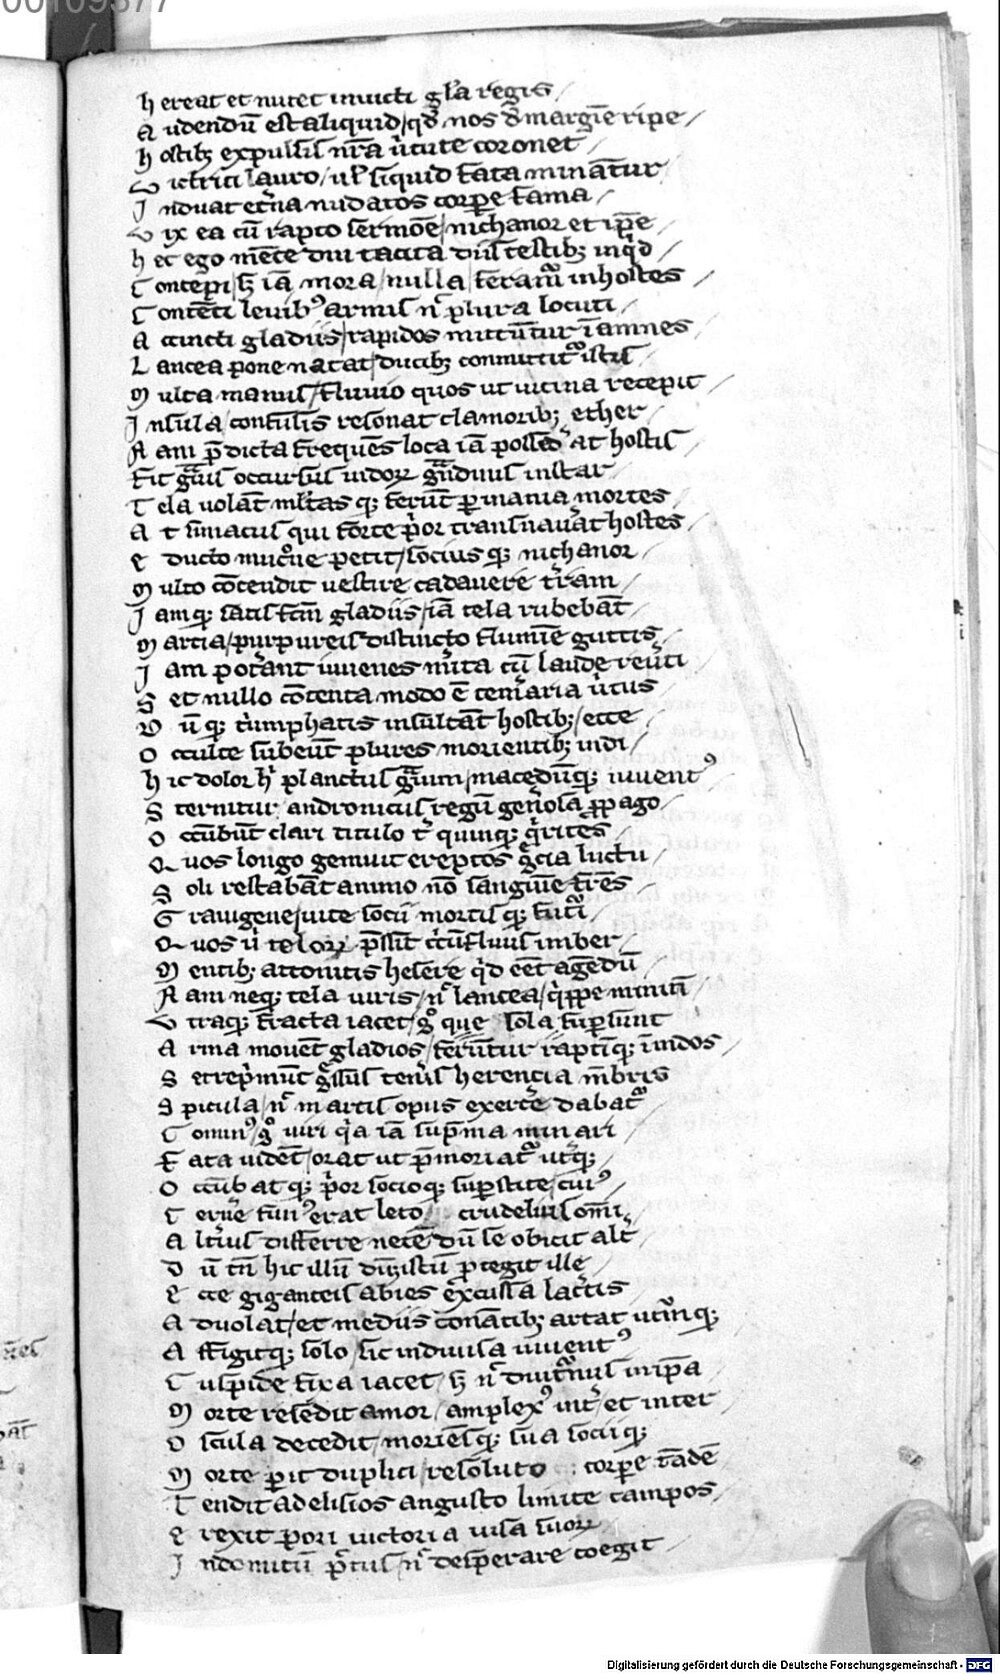 00109377
hereat et nutet inuicti gl̄a regis /
Audendū est aliquid / qđ nos đ margīe ripe /
hostib; expulsis nr̄a ũtute coronet /
Victrici lauro / ul̄ siquid fata minātur /
Inouat et̄na nudatos corpe fama /
Vix ea cū rapto sermōe / nichanor et ip̄e /
hec ego mēte diu tacita dius testib; inq̇d /
Concepi / h̄ iā mora / nulla / feramͬ in hostes /
Contēti leuibꝰ armis n̄ plura locuti /
Accincti gladiis / rapidos mittūtur ī amnes
Lancea pone natat / ducib; conmittitͬ istis
Multa manus / fluuio quos ut uicina recepit /
Insula / confusis resonat clamorib; ether /
Nam p̄dicta frequēs loca iā possedͬat hostis
Fit gͣuis occursus indoꝝ gͣndinis instar
Tela uolāt ml̄tas q; ferūt p inania mortes
At simacus qui forte p̓or transnauāt hostes
Educto mucͦne petit / socius q; nichanor /
Multo cōtendit uestire cadauere t̄ram
Iamq; satis fc̄m gladiis / iā tela rubebāt
Martia / purpureis distincto flumīe guttis
Iam pot̓ant iuuenes m̓ita cū laude reũti
Set nullo cōtenta modo ē tem̓aria ũtus
Dū q; t̓umphatis insultāt hostib; / ecce
Occulte subeūt plures morientib; indi /
hic dolor h̓ planctus gͣium / macedūq; iuuentꝰ
Sternitur andronicus regū gen̓osa ꝓpago
Occūbūt clari titulo t̓ quinq; q̓rites
Quos longo gemuit ereptos gͣcia luctu
Soli restabāt animo nō sanguīe fr̄es
Grauigene / uite socii mortis q; fut̓i
Quos ũ teloꝝ p̄ssit c̓cūfluus imber
Mentib; attonitis hesere q̓d eēt agēdū
Nam neq; tela uiris / n̄ lancea / q̓ppe minuti
Vtraq; fracta iacet / gͦ que sola supsunt
Arma mouēt gladios / ferūtur raptīq; ī indos
Set rep̓mūt gͤssus ten̓is herencia mēbris
Spicula / n̄ martis opus exerc̄e dabatͬ
Cominꝰ / gͦ uiri q̓a iā sup̄ma minari
Fata uidēt / orat ut p̄moriatͬ ut̓q;
Occubatq; p̓or socioq; supstite / cuiꝰ
Cern̓e funꝰ erat leto crudelius om̄i
Alt̓ius differre necē dū se obicit alt̓
Dū tn̄ hic illū dimistū ꝓtegit ille
Ecce giganteis abies excussa lac̓tis
Aduolat / et mediis conātib; artat ut̓mq;
Affigitq; solo / sic indiuisa iuuentꝰ
Cuspide fixa iacet / h̄ n̄ diuit̓nus in ip̄a
Morte resedit amor / amplexꝰ int̓ / et inter
Oscula decedit / moriēsq; sua sociiq;
Morte pit duplici / resoluto corpe tādē
Tendit ad elisios angusto limite campos
Erexit pori uictoria uisa suoꝝ
Indomitū p̄ctus / n̄ desperare coegit
Digitalisierung gefördert durch die Deutsche Forschungsgemeinschaft - DFG